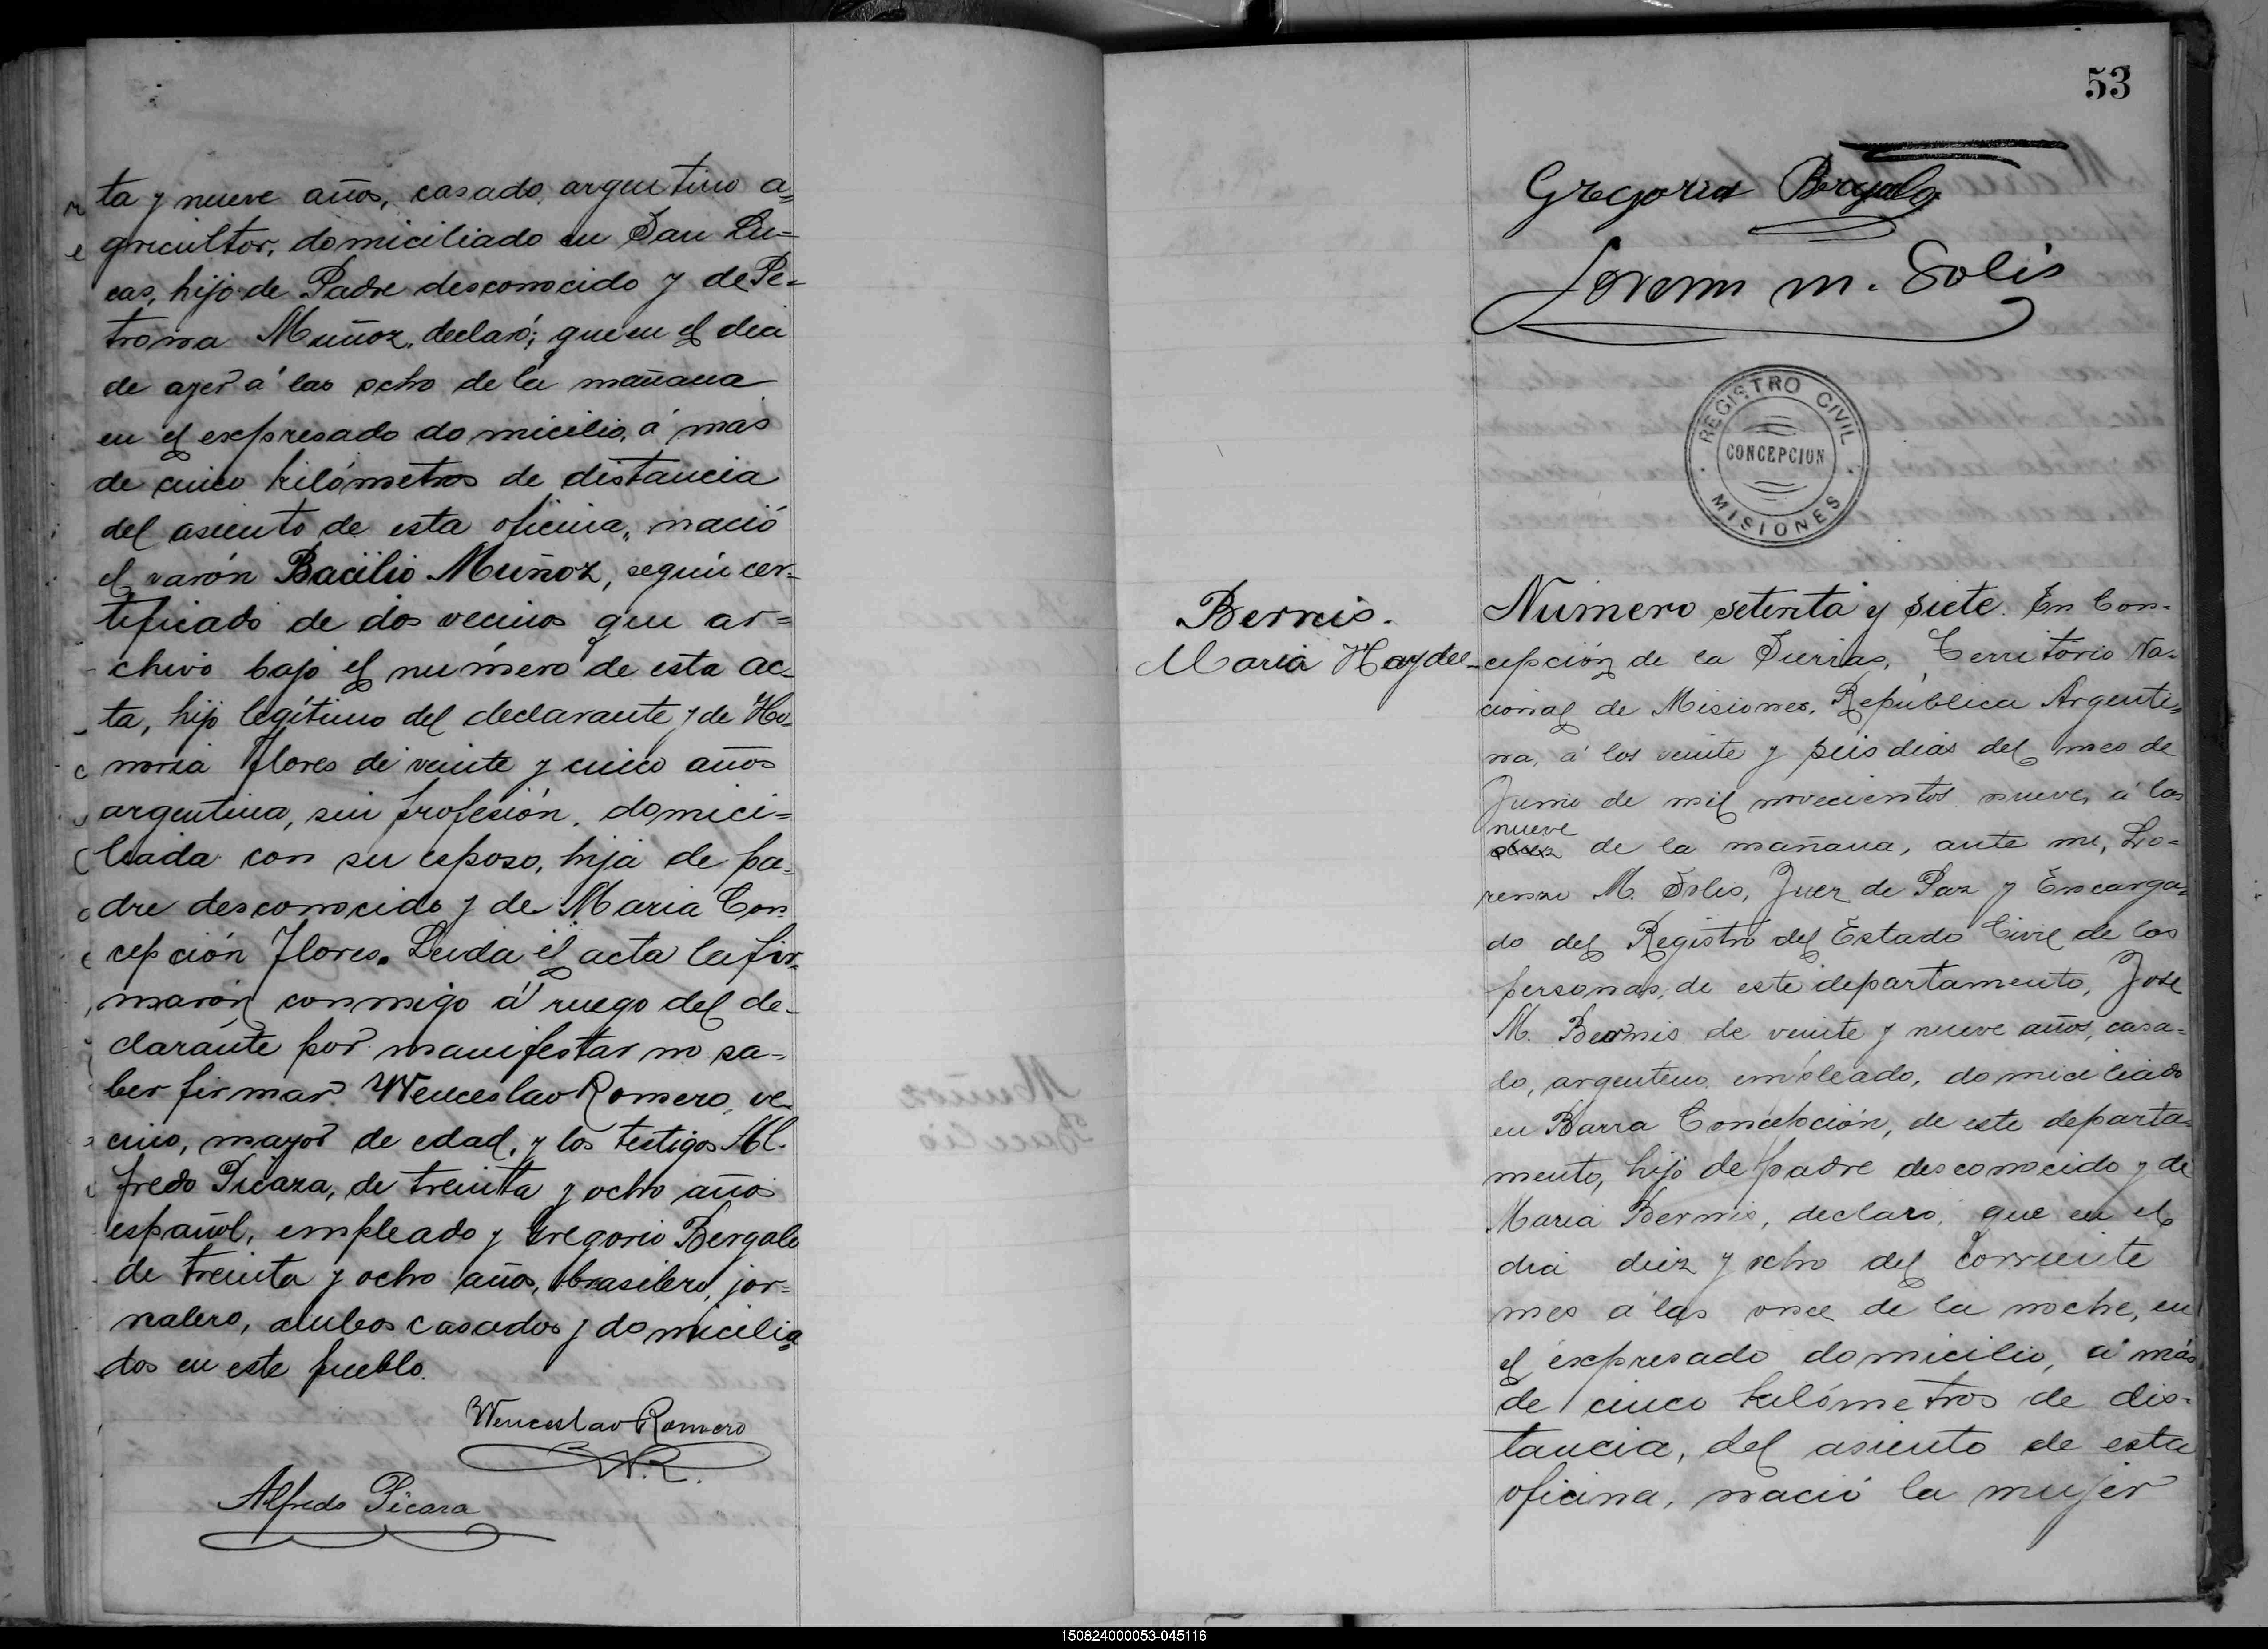 ta y nueve años, casado, argentino a=
gricultor, domiciliado en San Lu=
cas, hijo de Padre desconocido y de Pe=
trona Muñoz, declaró; que en el dia
de ayer á las ocho de la mañana
en el expresado domicilio, á mas
de cinco kilómetros de distancia
del asiento de esta oficina, nació
el varón Bacilio Muñoz, según cer=
tificado de dos vecinos que ar=
chivo bajo el número de esta ac=
ta, hijo legítimo del declarante y de Ho=
noria Flores de veinte y cinco años
argentina, sin profesión, domici=
liada con su esposo, hija de pa=
dre desconocido y de Maria Con
cepción Flores. Leida el acta la fir=
marón conmigo á ruego del de=
clarante por manifestar no sa=
ber firmar Wenceslao Romero, ve=
cino, mayor de edad, y los testigos Al=
fredo Picaza, de treinta y ocho años
español, empleado y Gregorio Bergalo
de treinta y ocho años, brasilero, jor=
nalero, ambos casados y domicilia=
dos en este pueblo.
Wenceslao Romero
W.R.
Alfredo Picaza
53
Gregorio Bergalo
Lorenzo M. Solis
REGISTRO CIVIL
CONCEPCION
MISIONES
Bernis.
Maria Haydee
Número setenta y siete. En Con=
cepción de la Sierras, Territorio Na=
cional de Misiones, República Argenti=
na, á los veinte y seis dias del mes de
Junio de mil novecientos nueve, á las
nueve
de la mañana, ante mi, Lo=
renzo M. Solis, Juez de Paz y Encarga=
do del Registro del Estado Civil de las
personas, de este departamento, José
M. Bernis de veinte y nueve años, casa=
do, argentino, empleado, domiciliado
en Barra Concepción, de este departa=
mento, hijo de padre desconocido y de
Maria Bernis, declaró, que en el
dia diez y ocho del corriente
mes á las once de la noche, en
el expresado domicilio, á más
de cinco kilómetros de dis=
tancia, del asiento de esta
oficina, nació la mujer
150824000053-045116